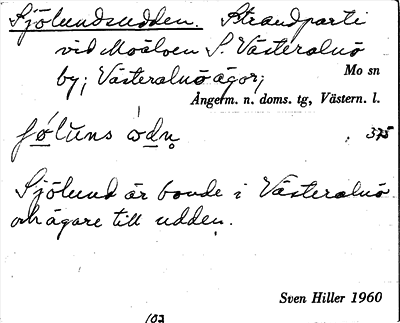 Sjölundsudden. Strandparti
vid Moälven S. Västeralnö
by; Västeralnö ägor;
Mo sn
Ångerm. n. doms. tg, Västern. l.
375
Sjölund är bonde i Västeralnö
och ägare till udden.
Sven Hiller 1960
102